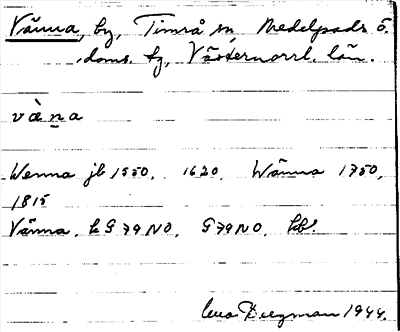 Vänna, by, Timrå sn, Medelpads ö.
doms. tg, Västernorrl. län.
vàna
Wenna jb 1550, 1620, Wänna 1750,
1815
Vänna, k G 79 NO, G 79 NO, kbl.
Bergman 1944.